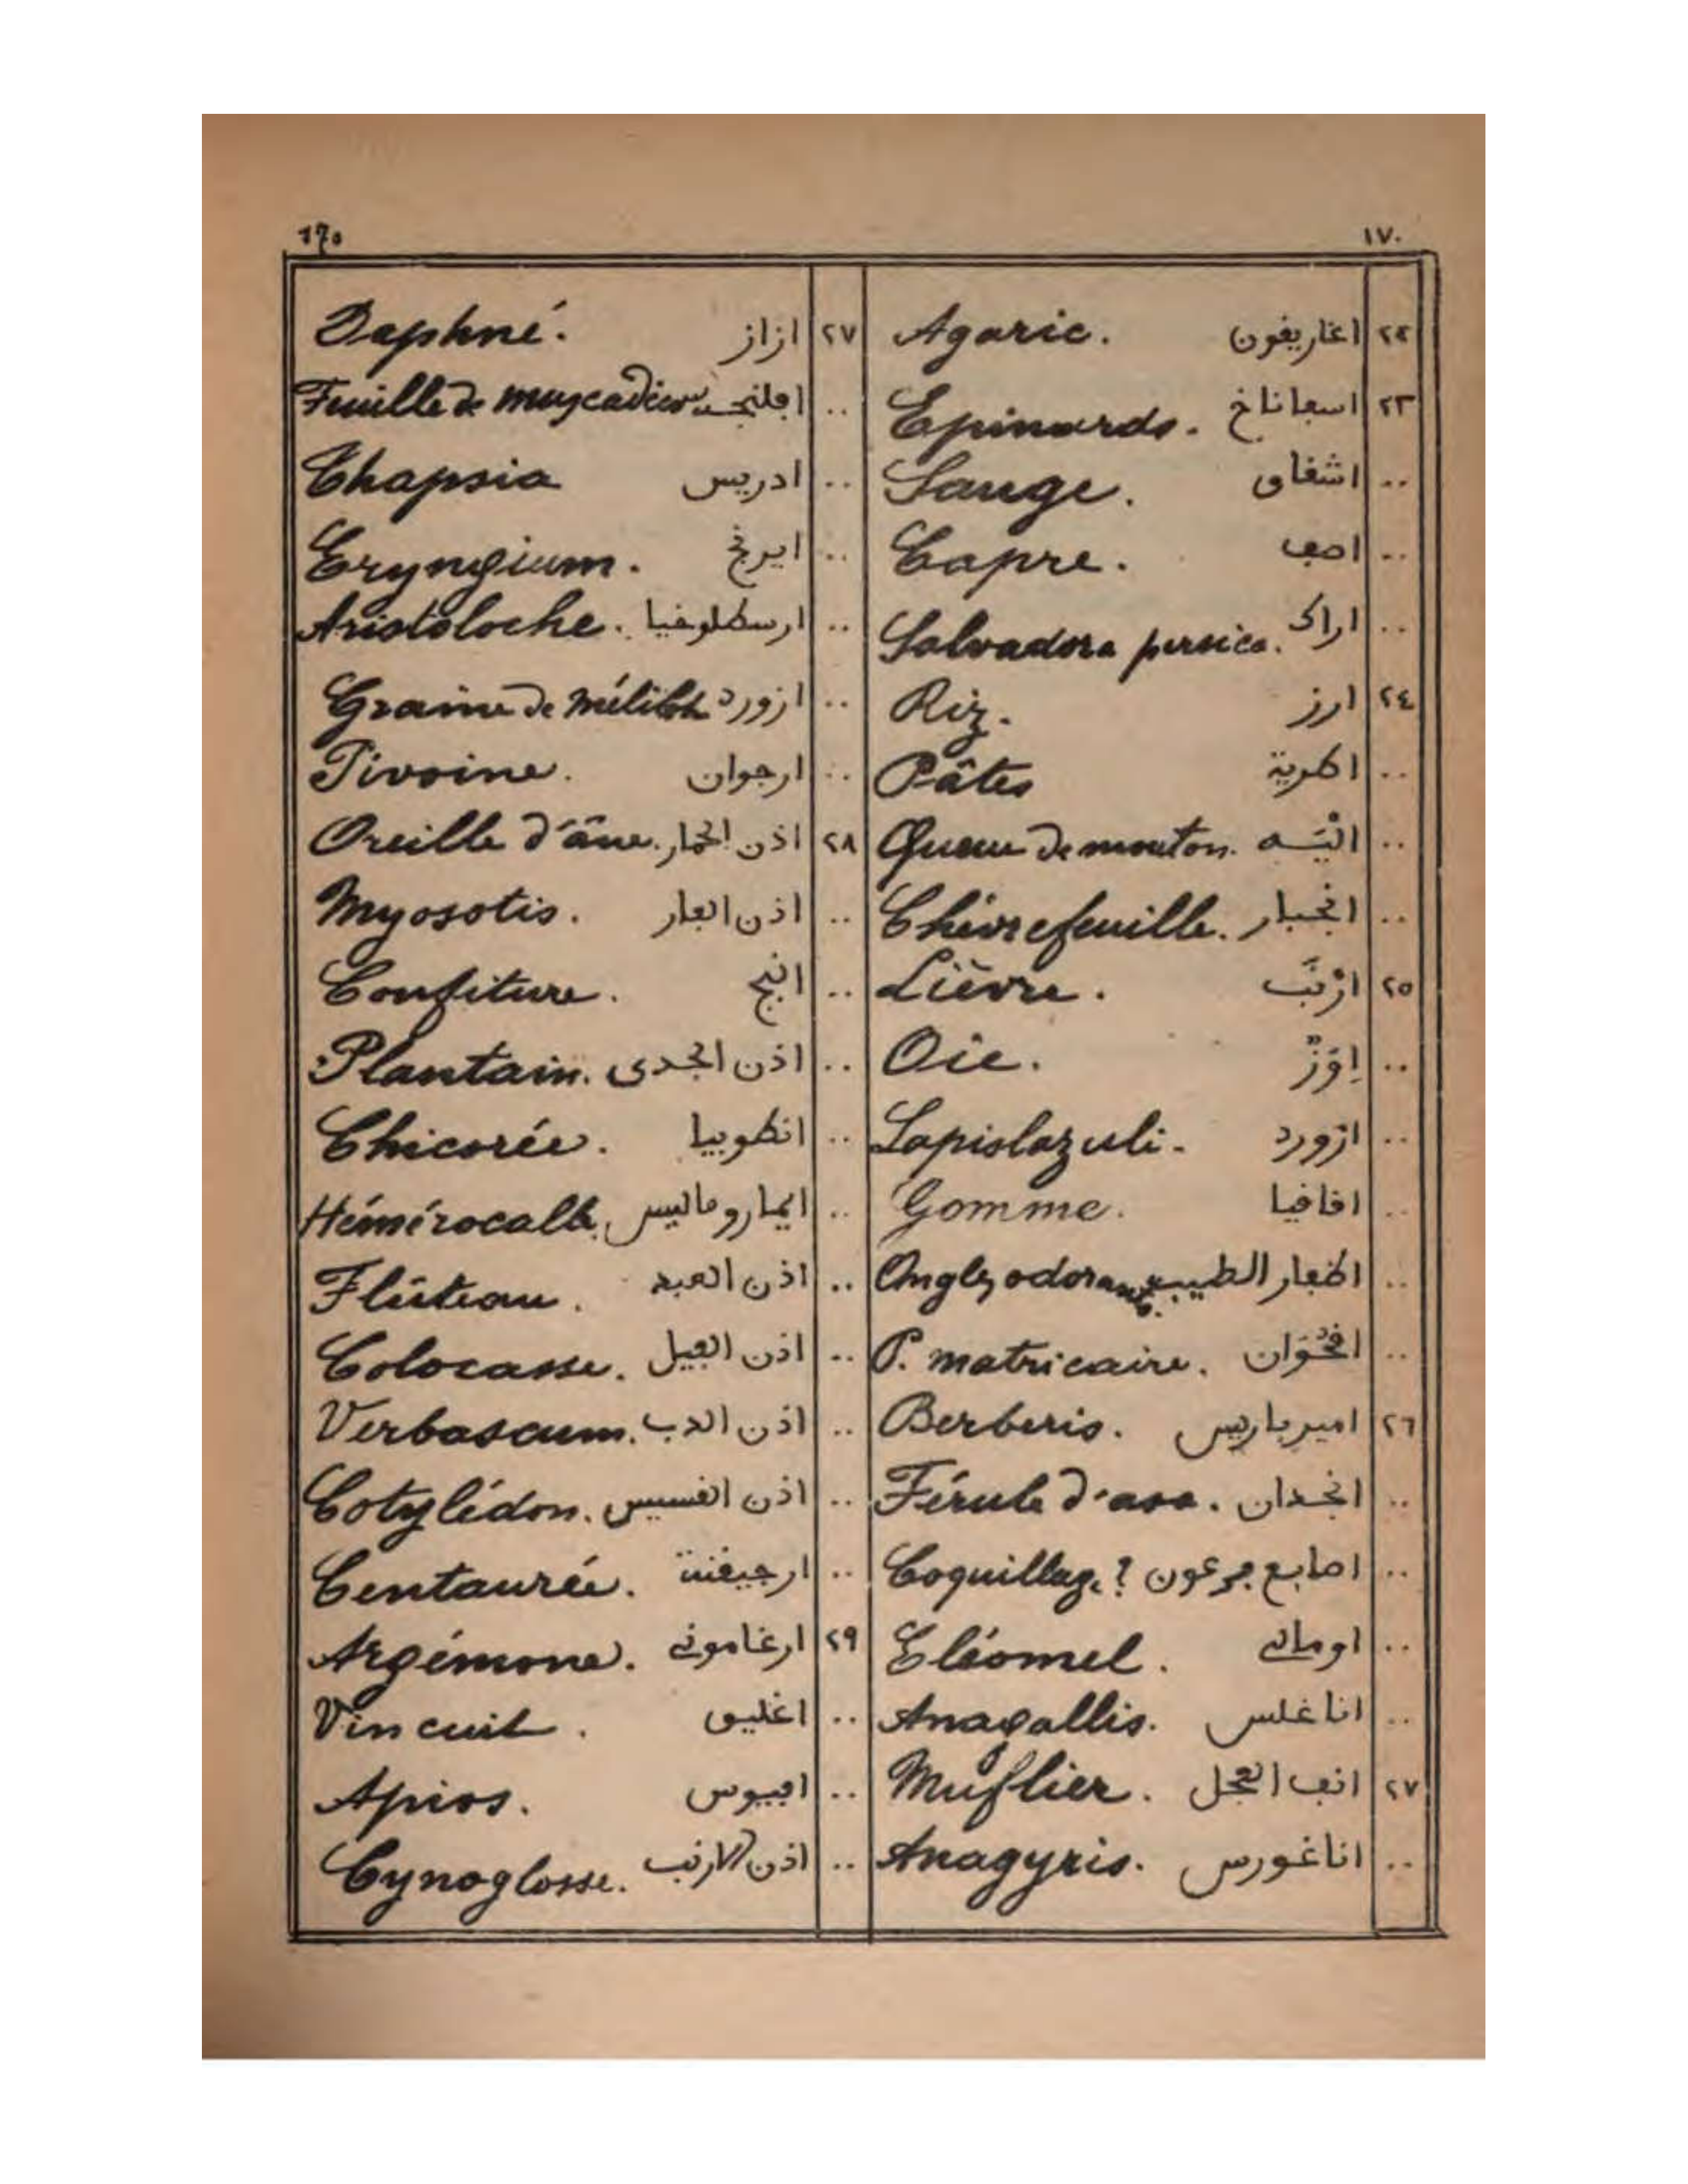 ١٧٠
٢٢ اغاريفون Agaric.
٢٣ اسباناخ Epinards.
.. اشفاق Sauge.
.. اصف Capre.
.. اراك Salvadora persica.
٢٤ ارز Riz.
.. اطرية Pâtes
.. الْيَـه Queue de mouton.
.. انجبار Chèvrefeuille.
٢٥ ارْنَب Lièvre.
.. اِوَزّ Oie.
.. ازورد Lapislazuli.
.. افافيا Gomme.
.. اظفار الطيب Ongles odorants.
.. افحُوَان P. matricaire.
٢٦ اميرباريس Berberis.
.. انجدان Férule d'asa.
.. اصابع فرعون Coquillage?
.. اومالي Eléomel.
.. اناغلس Anagallis.
٢٧ انف العجل Muflier.
.. اناغورس Anagyris.
٢٧ ازاز Daphné.
.. Feuille de muscadier
.. ادريس Thapsia
.. ايرنج Eryngium.
.. ارسطلوخيا Aristoloche.
.. ازورد Graine de mélilot
.. ارجوان Pivoine.
٢٨ اذن الحمار Oreille d'âne.
.. اذن الفار Myosotis.
.. انبج Confiture.
.. اذن الجدى Plantain.
.. انطوبيا Chicorée.
.. ايماروماليس Hémérocalle.
.. اذن العبد Flûteau.
.. اذن الفيل Colocasse.
.. اذن الدب Verbascum.
.. اذن القسيس Cotylédon.
.. ارجيفنة Centaurée.
٢٩ ارغاموني Argémone.
.. اغليق Vin cuit.
.. افيوس Apios.
.. اذن الارنب Cynoglosse.